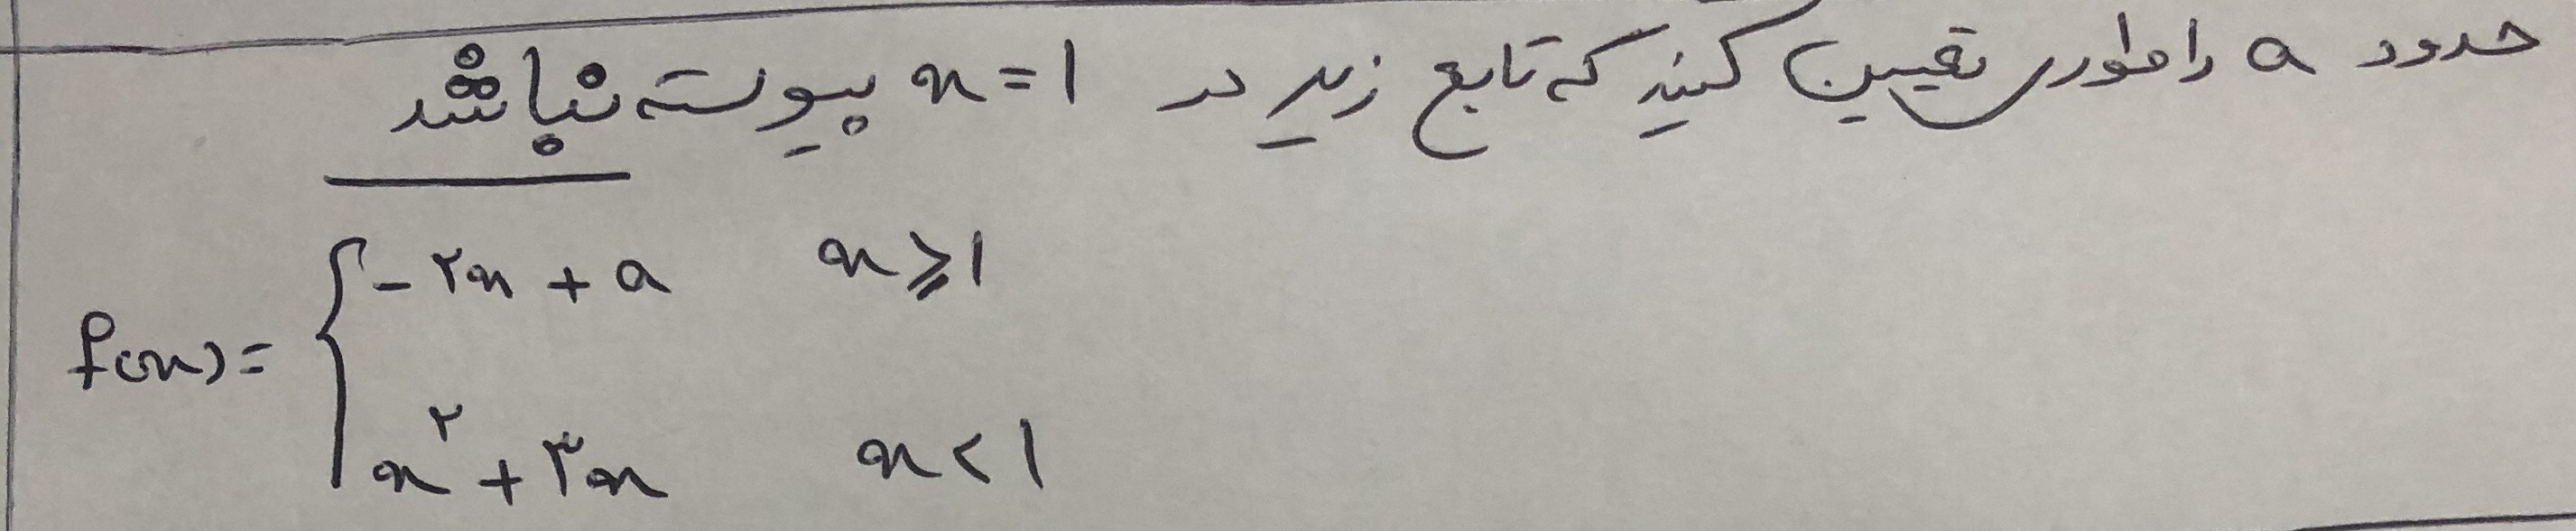 حدود a را طوری تعیین کنید که تابع زیر در x=1 پیوسته نباشد
f(x)= { -۲x + a    x ≥ 1
x^۲ + ۳x    x < 1